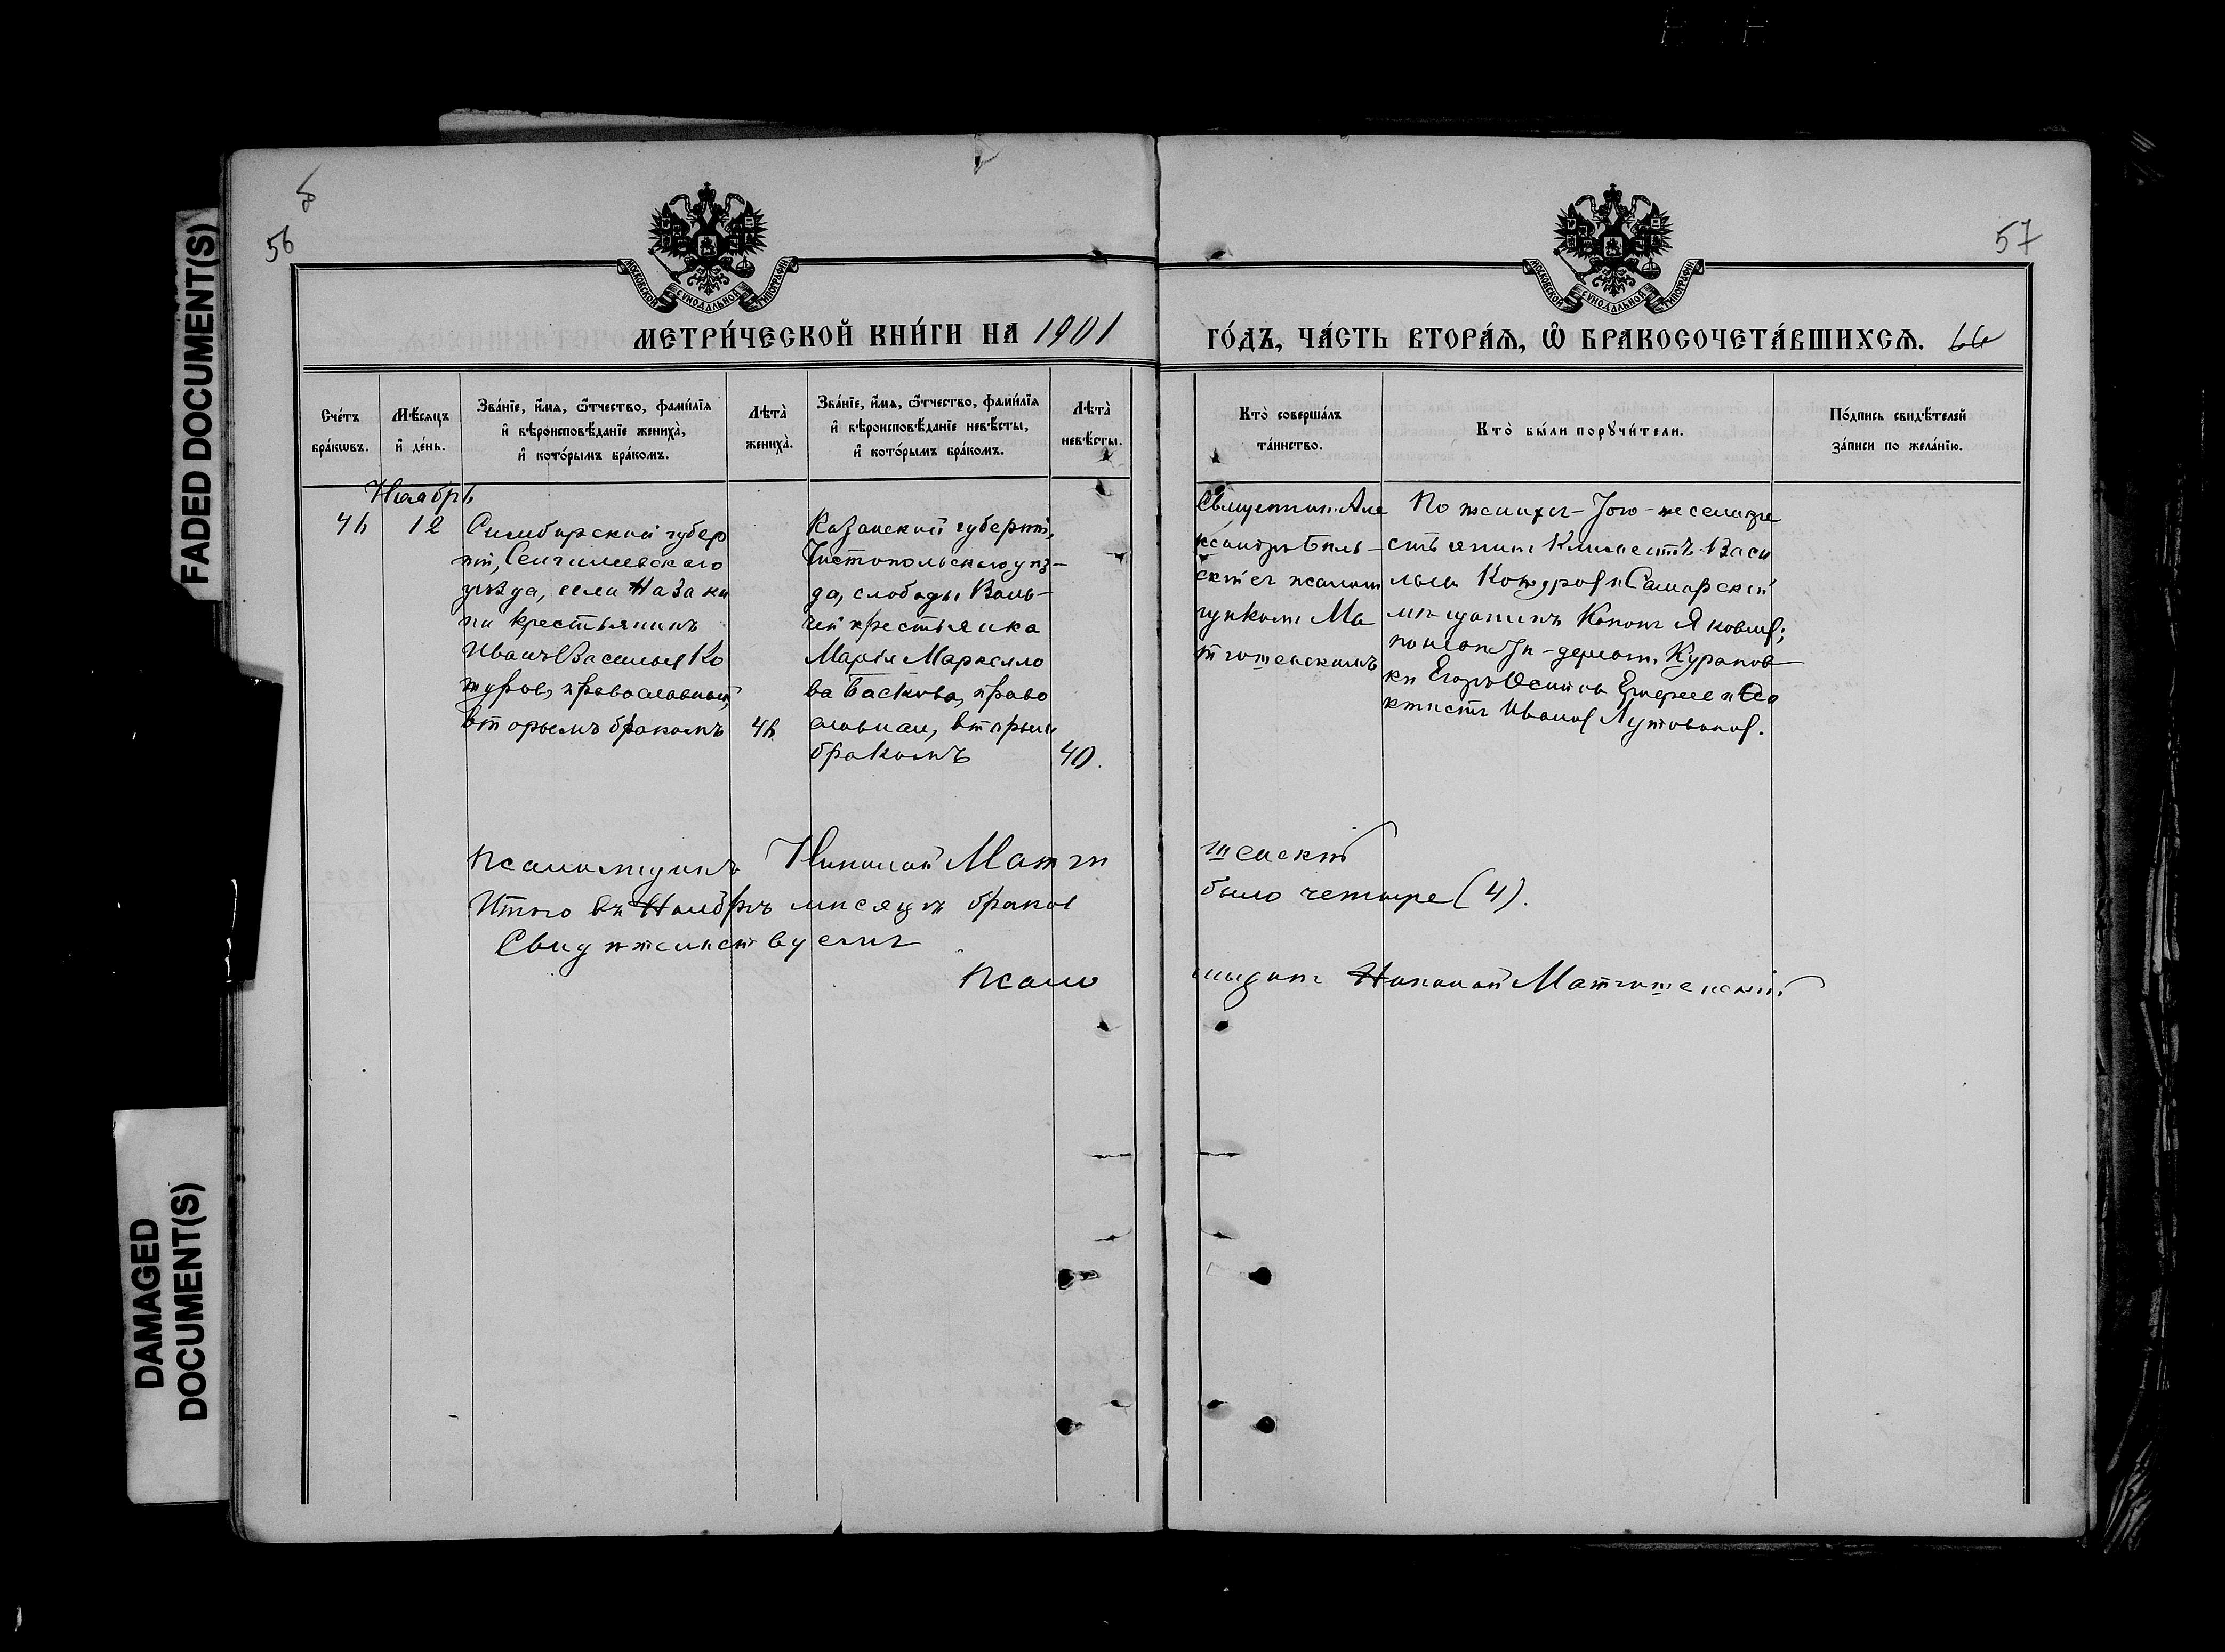 FADED DOCUMENT(S)
DAMAGED
DOCUMENT(S)
56
57
МОСКОВСКОЙ СѴНОДАЛЬНОЙ ТИПОГРАФІИ
МОСКОВСКОЙ СѴНОДАЛЬНОЙ ТИПОГРАФІИ
МЕТРИ́ЧЕСКОЙ КНИ́ГИ НА 1901
ГО́ДЪ, ЧА́СТЬ ВТОРА́Ѧ, Ѡ҆ БРАКОСОЧЕТА́ВШИХСѦ. 66
Сче́тъ
бра́кѡвъ.
Мѣ́сѧцъ
и҆ де́нь.
Зва́нїе, и҆́мѧ, ѻ҆́тчество, фами́лїѧ
и҆ вѣроисповѣ́данїе жениха̀,
и҆ кото́рымъ бра́комъ.
Лѣта̀
жениха̀.
Зва́нїе, и҆́мѧ, ѻ҆́тчество, фами́лїѧ
и҆ вѣроисповѣ́данїе невѣ́сты,
и҆ кото́рымъ бра́комъ.
Лѣта̀
невѣ́сты.
Кто̀ соверша́лъ
та́инство.
Кто̀ бы́ли порꙋчи́тели.
По́дпись свидѣ́телей
за́писи по жела́нїю.
Ноябрь
12
Симбирской губер
ніи, Сенгилеевскаго
уѣзда, села
крестьянинъ
Иванъ Васильев Ко
журов, православный,
вторымъ бракомъ
Казанской губерніи,
Чистопольскаго уѣз-
да, слободы
крестьянка
Марія Маркелло
ва Баскова, право
славная, вторым
бракомъ
40.
Священник Але
ксандръ Бѣль-
скій съ псалом
щиком Ма
тюшенскимъ
По женихѣ - Того-же села кре
стьянин Климентъ Васи
льев Кожуров и Самарскій
мѣщанинъ Конон Яковлев;
по невѣстѣ - деревни Куранов
ки Егоръ Осипов и Ѳео
ктистъ Иванов
Псаломщикъ Николай Матю
шенскій
Итого въ Ноябрѣ мѣсяцѣ браков
было четыре (4).
Свидѣтельствуем
Псало
мщикъ Николай Матюшенскій